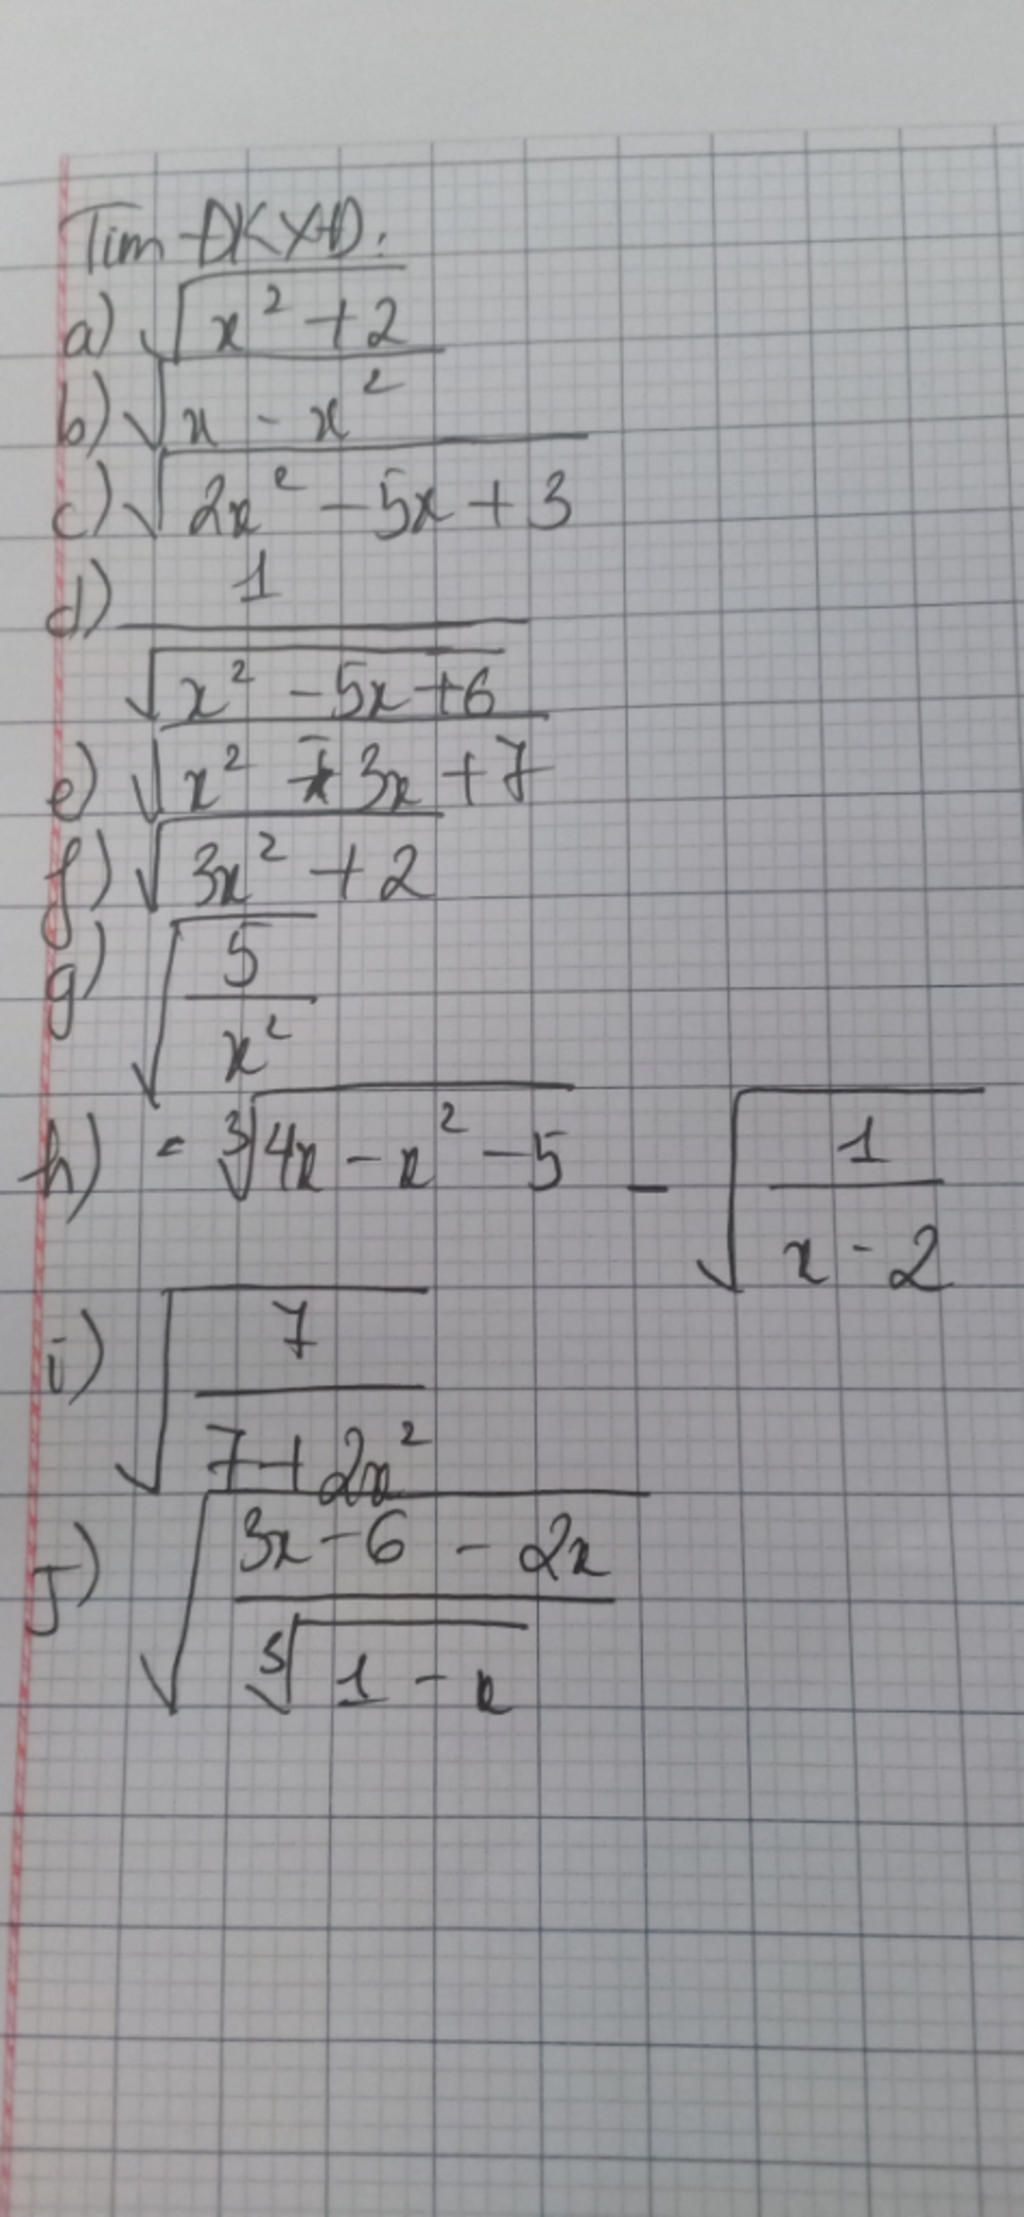 Tìm ĐKXĐ:
a) √(x² + 2)
b) √(x - x²)
c) √(2x² - 5x + 3)
d) 1 / √(x² - 5x + 6)
e) √(x² - 3x + 7)
f) √(3x² + 2)
g) √(5 / x²)
h) = ∛(4x - x² - 5) - √(1 / (x - 2))
i) √(7 / (7 + 2x²))
j) √((3x - 6 - 2x) / ⁵√(1 - x))